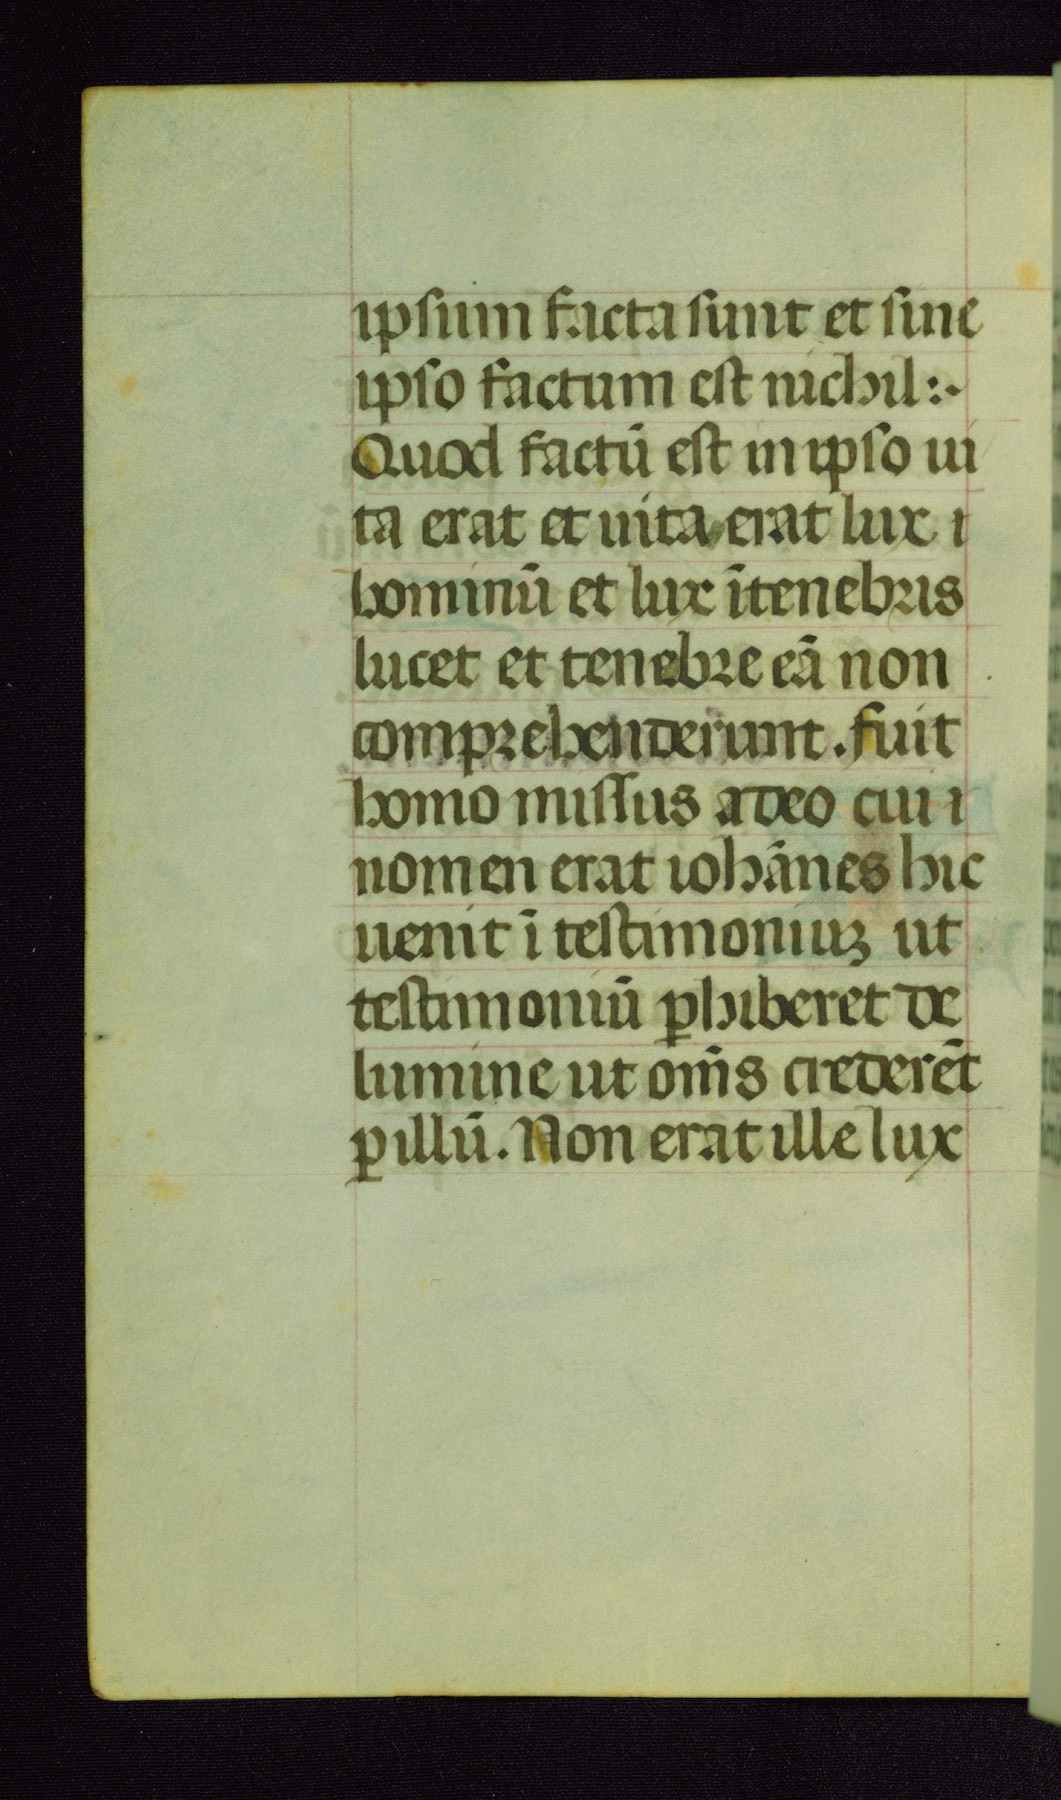 ipsum facta sunt et sine
ipso factum est nichil:·
Quod factū est in ipso ui
ta erat et uita erat lux i
hominū et lux ītenebris
lucet et tenebre eā non
comprehenderunt. fuit
homo missus a deo cui i
nomen erat iohānes hic
uenit ī testimoniuꝫ ut
testimoniū ꝑhiberet de
lumine ut om̄s crederēt
ꝑ illū. Non erat ille lux